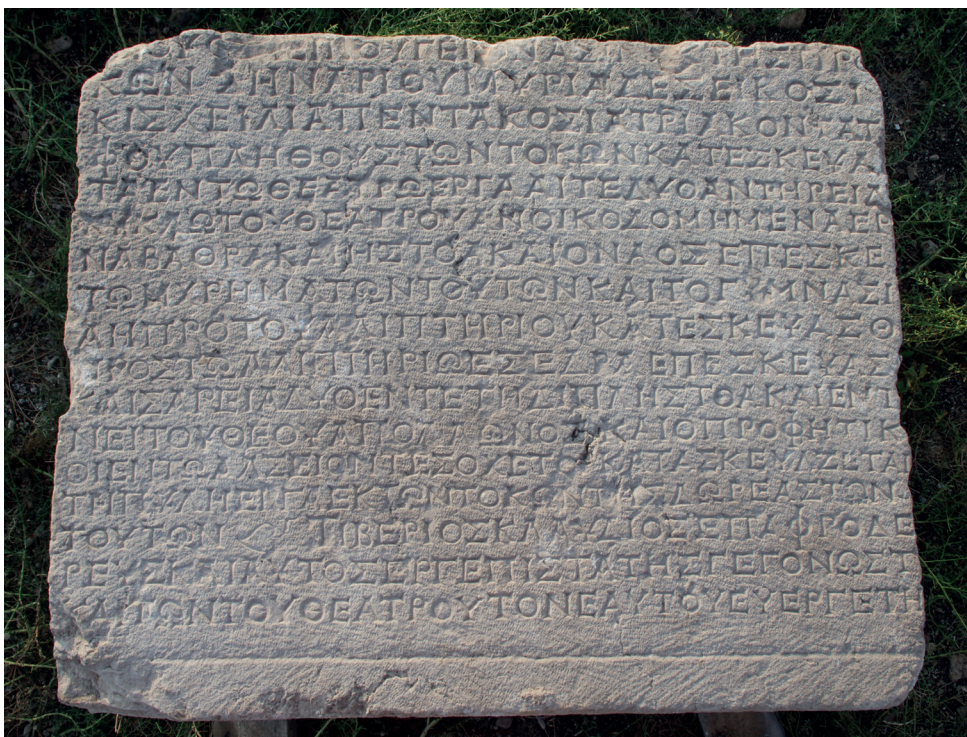 ΚΩΝ 𐆖 ΗΝ ΑΡΙΘΥ ΜΥΡΙΑΔΕΣ ΕΙΚΟΣΙ
ΚΙΣΧΕΙΛΙΑ ΠΕΝΤΑΚΟΣΙΑ ΤΡΙΑΚΟΝΤΑ
ΠΛΗΘΟΥΣ ΤΩΝ ΤΟΚΩΝ ΚΑΤΕΣΚΕΥΑ
ΤΑ ΕΝ ΤΩ ΘΕΑΤΡΩ ΕΡΓΑ ΑΙ ΤΕ ΔΥΟ ΑΝΤΗΡΕΙΔ
ΚΥΚΛΩ ΤΟΥ ΘΕΑΤΡΟΥ ΑΝΟΙΚΟΔΟΜΗΜΕΝΑ ΕΠ
ΝΑ ΒΑΘΡΑ ΚΑΙ Η ΣΤΟΑ ΚΑΙ Ο ΝΑΟΣ ΕΠΕΣΚΕ
ΤΩΝ ΧΡΗΜΑΤΩΝ ΤΟΥΤΩΝ ΚΑΙ ΤΟ ΓΥΜΝΑΣΙ
ΔΗ ΠΡΟ ΤΟΥ ΑΛΙΠΤΗΡΙΟΥ ΚΑΤΕΣΚΕΥΑΣΘ
ΠΡΟΣ ΤΩ ΑΛΙΠΤΗΡΙΩ ΕΞΕΔΡΑ ΕΠΕΣΚΕΥΑΣ
ΚΑΙΣΑΡΕΙΑ ΔΟΘΕΝ ΤΕ ΤΗ ΔΙΠΛΗ ΣΤΟΑ ΚΑΙ ΕΝ Τ
ΤΟΥ ΘΕΟΥ ΑΠΟΛΛΩΝΟΣ ΚΑΙ Ο ΠΡΟΦΗΤΙΚ
ΚΑΤΑΣΚΕΥΑΖΕΤΑ
ΕΚ ΤΩΝ ΤΟΚΩΝ ΤΗΣ ΔΩΡΕΑΣ ΤΩΝ
ΤΟΥΤΩΝ ΤΙΒΕΡΙΟΣ ΚΛΑΥΔΙΟΣ ΕΠΑΦΡΟΔΕ
ΡΕΥΣ ΚΑΙ ΑΥΤΟΣ ΕΡΓΕΠΙΣΤΑΤΗΣ ΓΕΓΟΝΩΣ Τ
ΚΑΙ ΤΩΝ ΤΟΥ ΘΕΑΤΡΟΥ ΤΟΝ ΕΑΥΤΟΥ ΕΥΕΡΓΕΤΗ